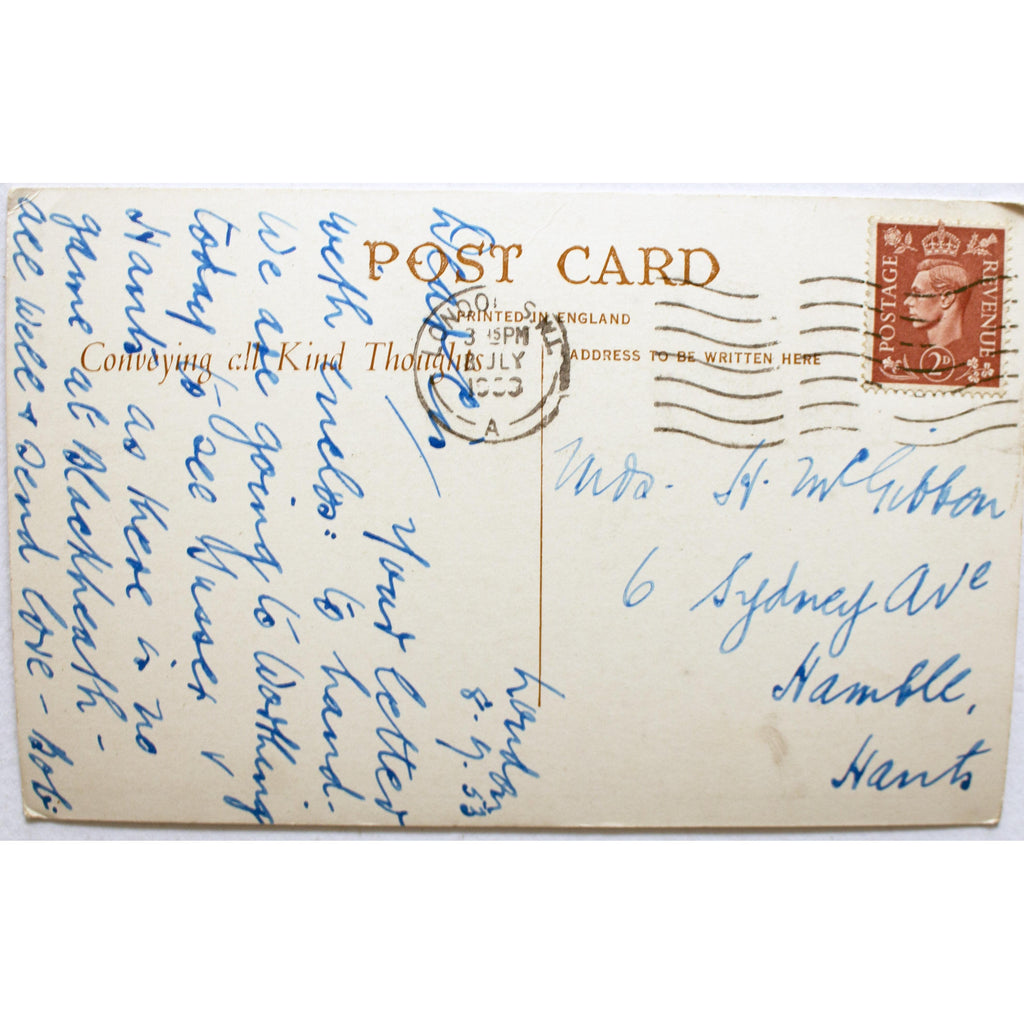 POST CARD
PRINTED IN ENGLAND
Conveying all Kind Thoughts
ADDRESS TO BE WRITTEN HERE
POSTAGE
REVENUE
2D
LONDON S.W.1
3 15PM
8 JLY
1953
A
London
8.7.53
Your letter
with Enclos: to hand.
We are going to Worthing
today to see Sussex v
Hants as there is no
game at Blackheath -
all well & send love - Bob.
Mrs. H. McGibbon
6 Sydney Ave
Hamble,
Hants